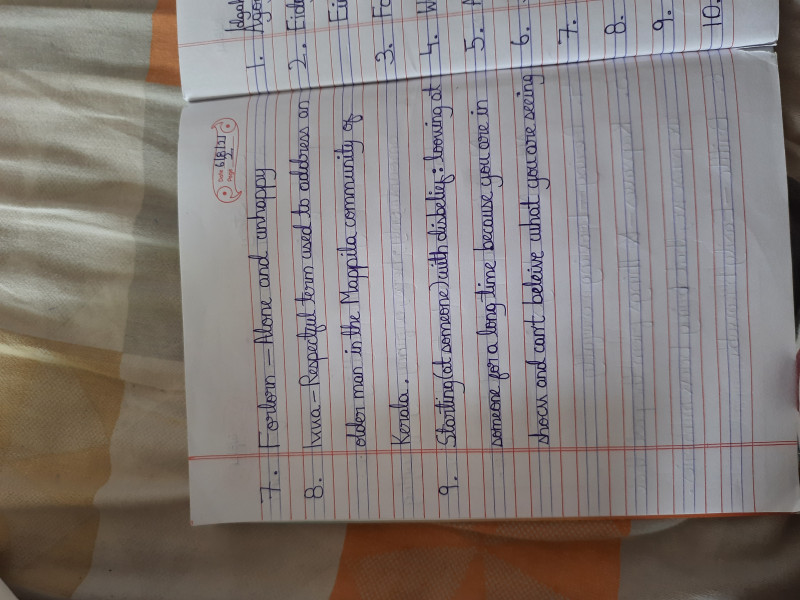 Date 6/8/21
Page 2.
7. Forlorn - Alone and unhappy
8. Ikka - Respectful term used to address an
older man in the Mappila community of
Kerala.
9. Starting (at someone) with disbelief : looking at
someone for a long time because you are in
shock and can't beleive what you are seeing
1.
2. Eid
3. Fo
4. W
5. A
6.
7.
8.
9.
10.